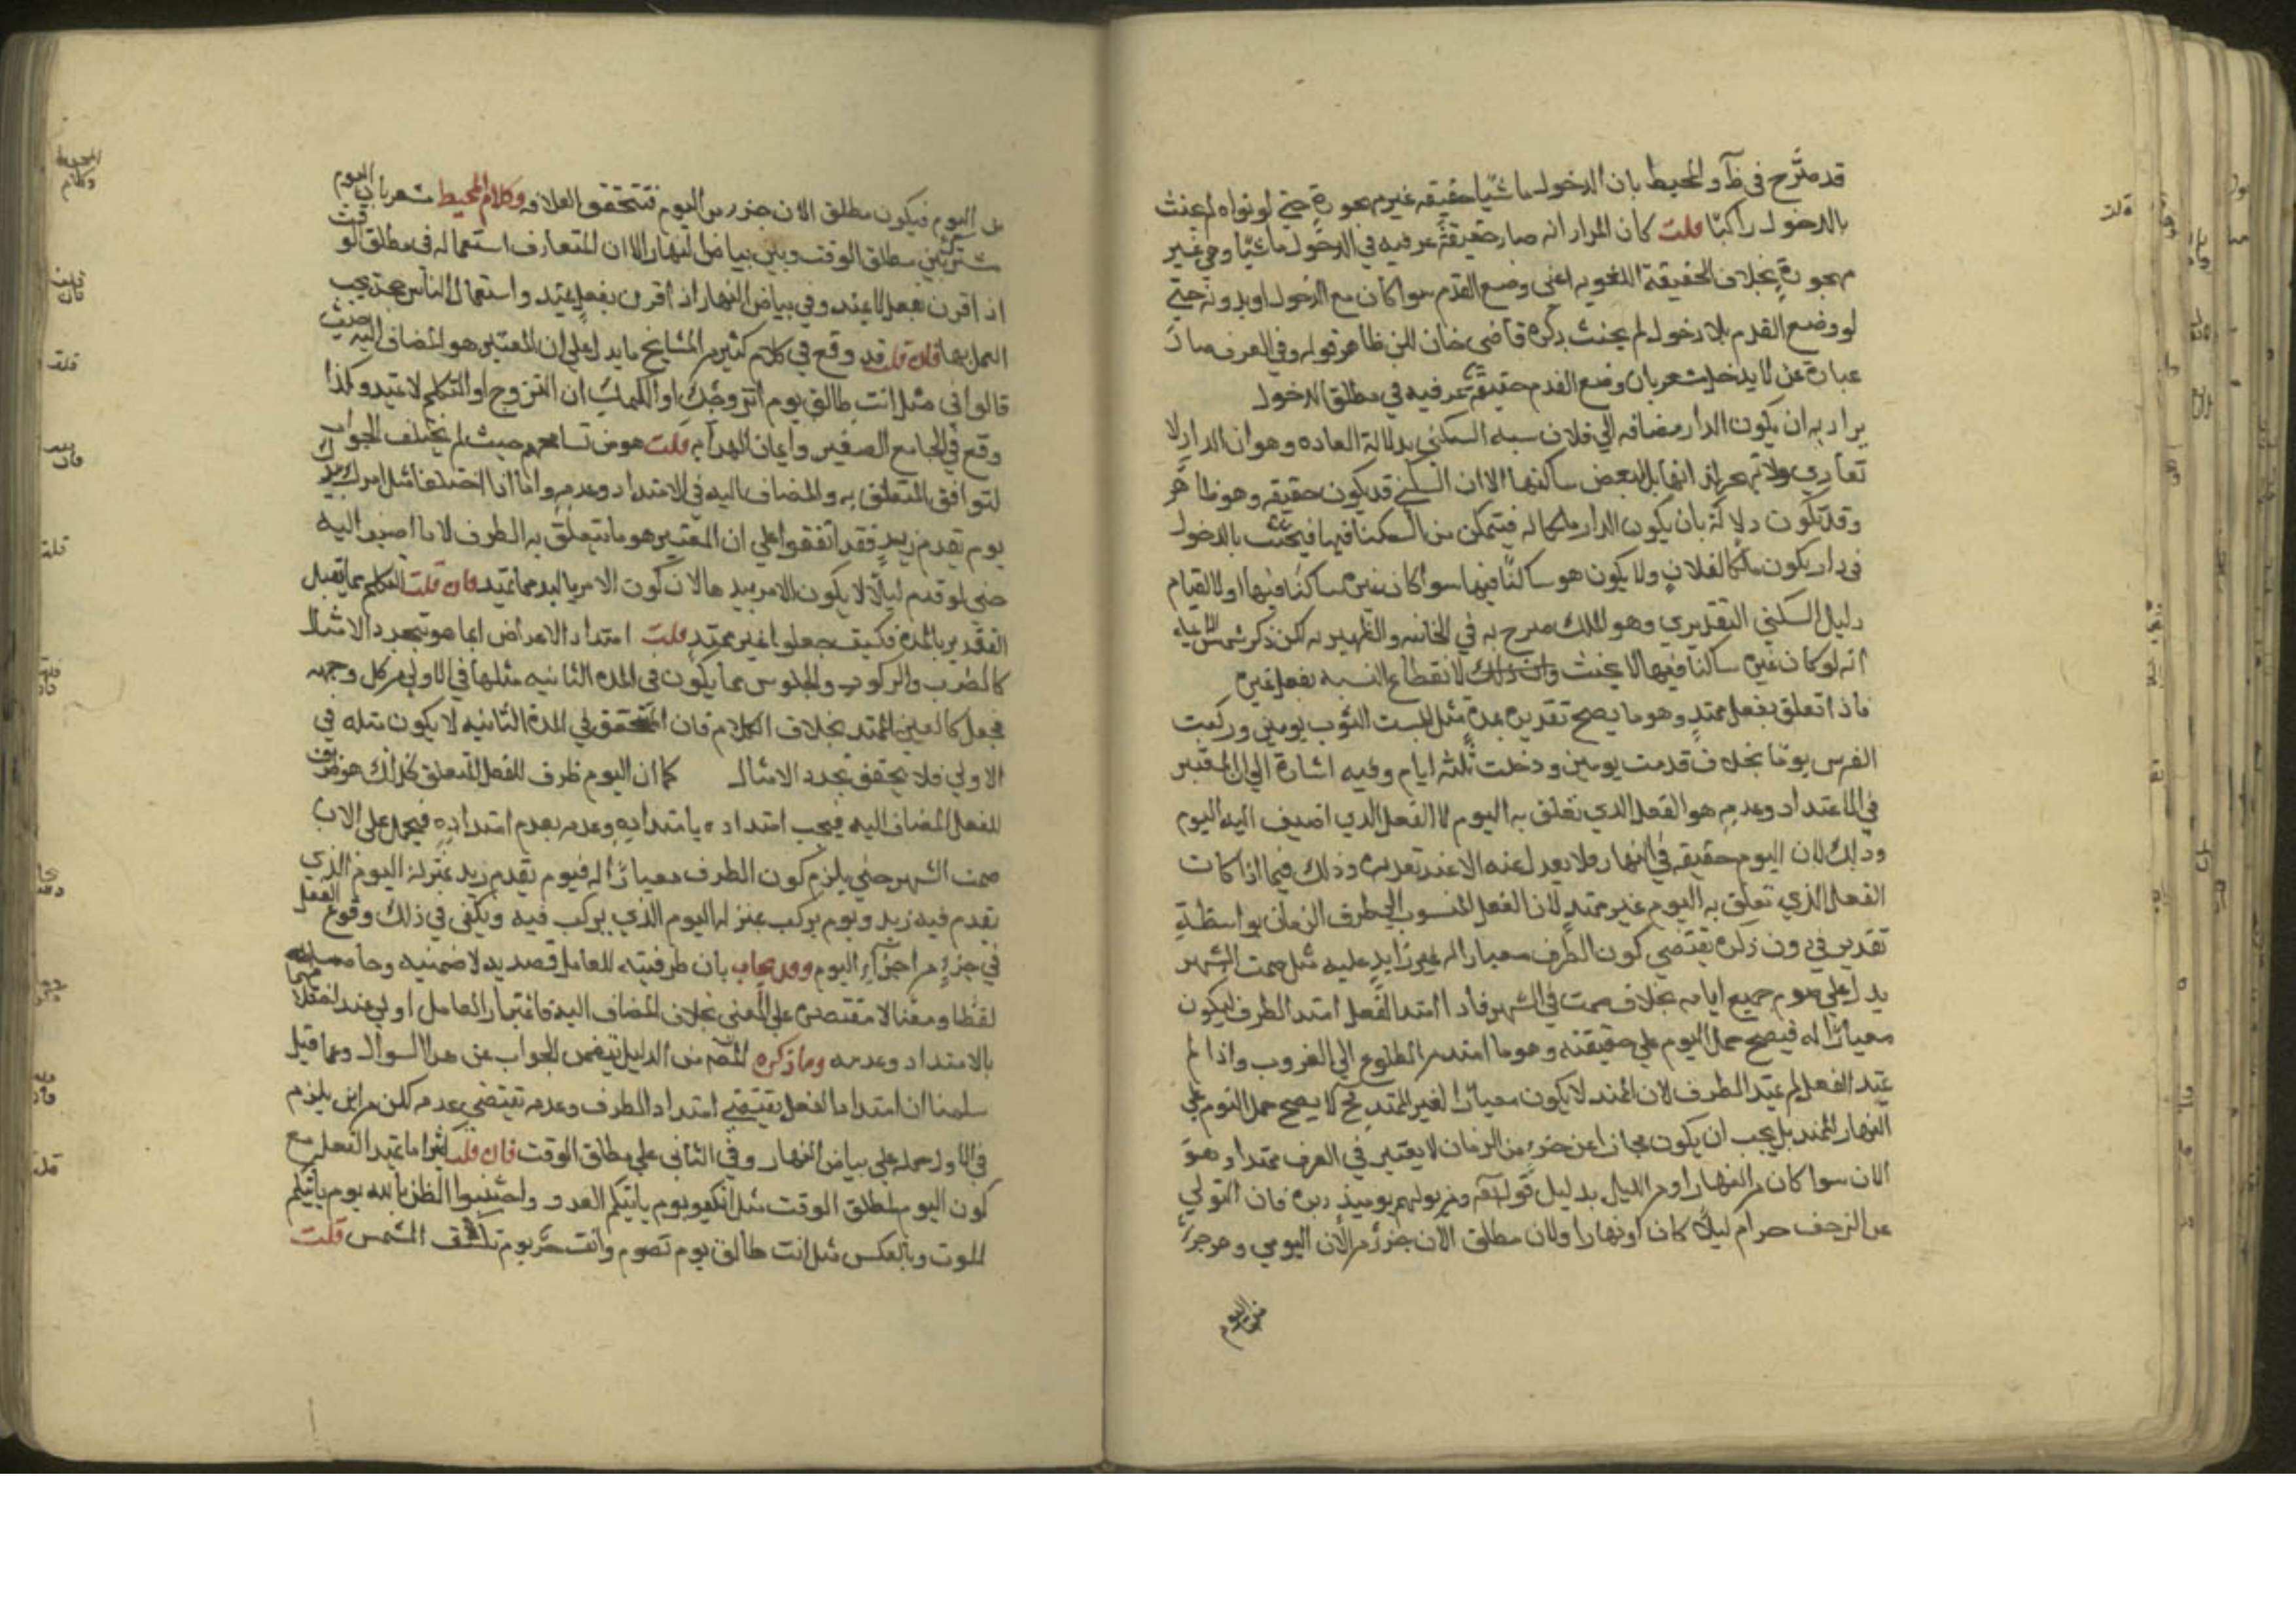 قد صرح في ظ و المحيط بان الدخول ماشيا حقيقة غير مهجورة حتى لو نواه لم يحنث
بالدخول راكبا قلت كان المراد انه صار حقيقة عرفيه في الدخول ماشيا وهي غير
مهجورة بخلاف الحقيقة اللغويه اعني وضع القدم سوا كان مع الدخول او بدونه حتى
لو وضع القدم بلا دخول لم يحنث ذكره قاضي خان لكن ظاهر قوله وفي العرف صار
عبارة عن لا يدخل يشعر بان وضع القدم حقيقة عرفيه في مطلق الدخول
يراد به ان يكون الدار مضافه الي فلان نسبه السكني بدلالة العاده وهو ان الدار لا
تعادي ولا تهجر لذاتها بل لبغض ساكنها الا ان السكني قد يكون حقيقه وهو ظاهر
وقد تكون دلالة بان يكون الدار ملكا له فيتمكن من السكنا فيها فيحنث بالدخول
في دار يكون ملكا لفلان ولا يكون هو ساكنا فيها سوا كان غيره ساكنا فيها او لا لقيام
دليل السكني التقديري وهو الملك صرح به في الخانيه والظهيريه لكن ذكر شمس الائمه
انه لو كان غيره ساكنا فيها لا يحنث لانقطاع النسبه بفعل غيره
فاذا تعلق بفعل ممتد وهو ما يصح تقديره بمدة مثل لبست الثوب يومين وركبت
الفرس يوما بخلاف قدمت يومين ودخلت ثلثة ايام وفيه اشارة الي ان المعتبر
في الامتداد وعدمه هو الفعل الذي تعلق به اليوم لا الفعل الذي اضيف اليه اليوم
وذلك لان اليوم حقيقه في النهار فلا يعدل عنه الا عند تعذره وذلك فيما اذا كانت
الفعل الذي تعلق به اليوم غير ممتد لان الفعل المنسوب الي ظرف الزمان بواسطة
تقدير في دون ذكره يقتضي كون الظرف معيارا له غير زايد عليه مثل صمت الشهر
يدل علي صوم جميع ايامه بخلاف صمت في الشهر فاذا امتد الفعل امتد الظرف ليكون
معيارا له فيصح حمل اليوم علي حقيقته وهو ما امتد من الطلوع الي الغروب واذا لم
يمتد الفعل لم يمتد الظرف لان الممتد لا يكون معيارا لغير الممتد فح لا يصح حمل اليوم علي
النهار الممتد بل يجب ان يكون مجازا عن جزء من الزمان لا يعتبر في العرف ممتدا وهو
الان سوا كان من النهار او من الليل بدليل قوله تعالى ومن يولهم يوميذ دبره فان التولي
عن الزحف حرام ليلا كان او نهارا ولان مطلق الآن جزء من الآن اليومي وهو جزء
من اليوم
قلت
من اليوم فيكون مطلق الان جزء من اليوم فتتحقق العلاقه وكلام المحيط مشعر بان اليوم
مشترك بين مطلق الوقت وبين بياض النهار الا ان المتعارف استعماله في مطلق الوقت
اذا قرن بفعل لا يمتد وفي بياض النهار اذا قرن بفعل يمتد واستعمال الناس حجة يجب
العمل بها فان قلت قد وقع في كلام كثير من المشايخ ما يدل علي ان المعتبر هو المضاف اليه حيث
قالوا في مثل انت طالق يوم اتزوجك او اكلمك ان التزوج او التكلم لا يمتد وكذا
وقع في الجامع الصغير وايمان الهدايه قلت هو من تسامحهم حيث لم يختلف الجواب
لتوافق المتعلق به والمضاف اليه في الامتداد وعدمه واما اذا اختلفا مثل امرك بيدك
يوم يقدم زيد فقد اتفقوا علي ان المعتبر هو ما تتعلق به الظرف لا ما اضيف اليه
حتى لو قدم ليلا لا يكون الامر بيدها لان كون الامر باليد مما يمتد فان قلت التكلم مما يقبل
التقدير بالمدة فكيف جعلوا غير ممتد قلت امتداد الاعراض انما هو بتجدد الامثال
كالضرب والركوب والجلوس مما يكون في المدة الثانيه مثلها في الاولي من كل وجه
فجعل كالعين الممتد بخلاف الكلام فان المتحقق في المدة الثانيه لا يكون مثله في
الاولي فلا يتحقق تجدد الامثال كما ان اليوم ظرف للفعل المتعلق كذلك هو ظرف
للفعل المضاف اليه فيجب امتداده بامتداده وعدمه بعدم امتداده فيحمل على الان
صمت الشهر حتى يلزم كون الظرف معيارا له فيوم يقدم زيد بمنزلة اليوم الذي
يقدم فيه زيد ويوم يركب بمنزلة اليوم الذي يركب فيه ويكفي في ذلك وقوع الفعل
في جزء من اجزاء اليوم وقد يجاب بان ظرفيته للعامل قصديه لا ضمنيه وحاصله
لفظا ومعنا لا مقتصره علي المعنى بخلاف المضاف اليه فاعتبار العامل اولي عند اختلافهما
بالامتداد وعدمه وما ذكره المصنف من الدليل يتضمن الجواب عن هذا السوال وعما قيل
سلمنا ان امتداد الفعل يقتضي امتداد الظرف وعدمه يقتضي عدمه لكن من اين يلزم
في الاول حمله علي بياض النهار وفي الثاني علي مطلق الوقت فان قلت كثيرا ما يمتد الفعل مع
كون اليوم لمطلق الوقت مثل اركبوا يوم ياتيكم العدو واحسنوا الظن بالله يوم ياتيكم
الموت وبالعكس مثل انت طالق يوم تصوم وانت حر يوم تنكسف الشمس قلت